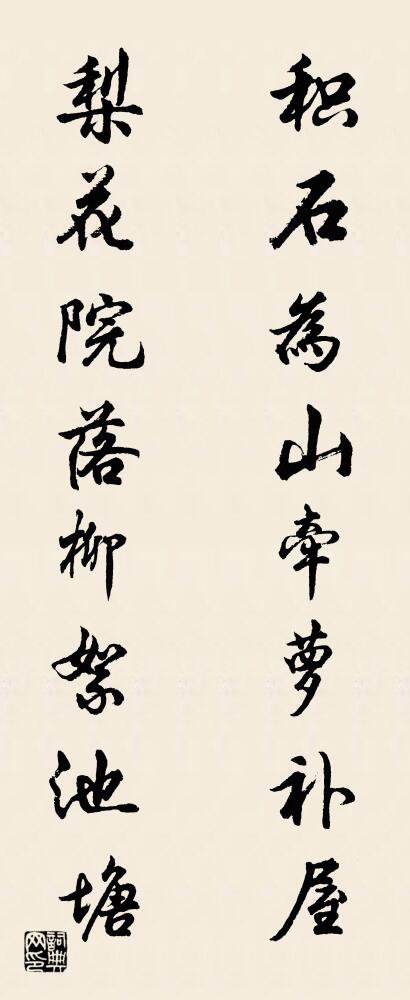 积石為山牽萝补屋
梨花院落柳絮池塘
詞典网印